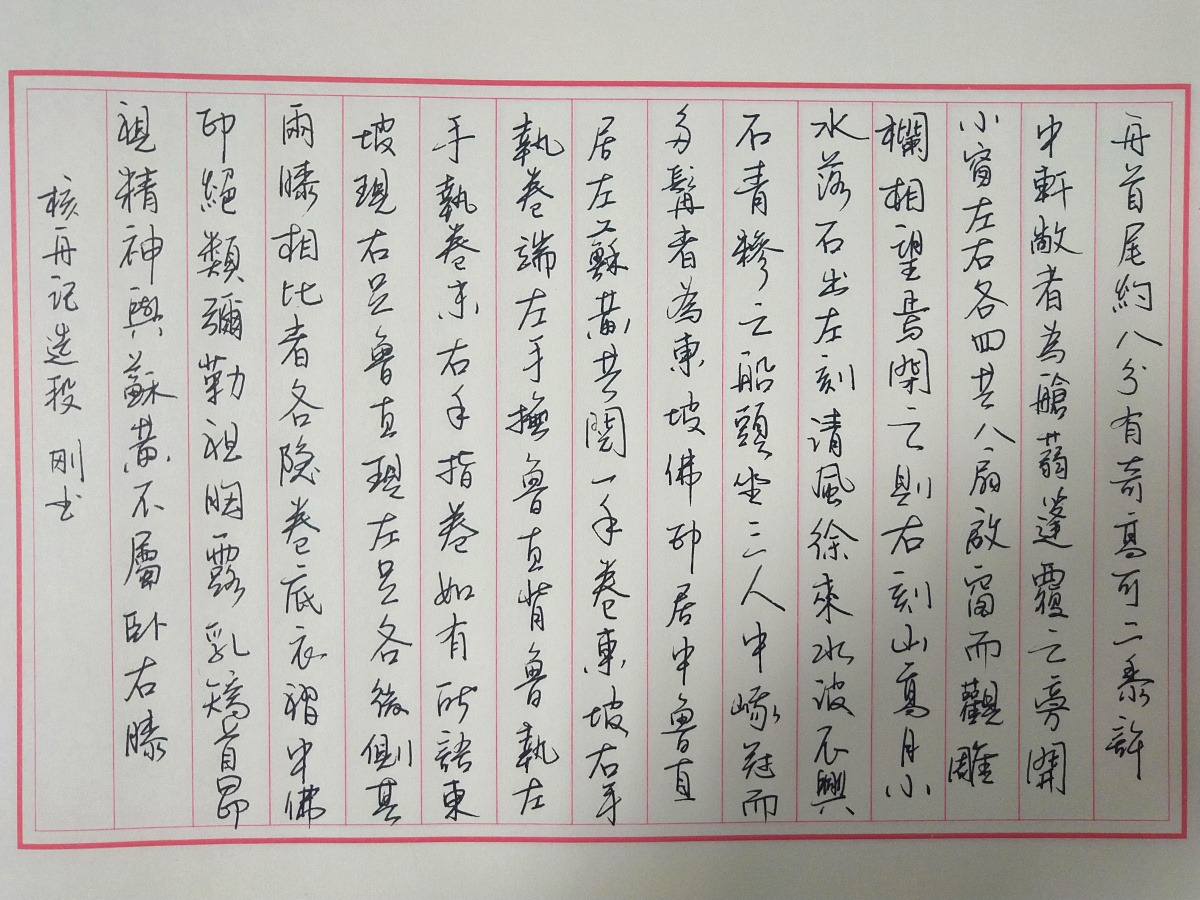 舟首尾約八分有奇高可二黍許
中軒敞者為艙蒻蓬覆之旁開
小窗左右各四共八扇啟窗而觀雕
欄相望焉閉之則右刻山高月小
水落石出左刻清風徐來水波不興
石青糝之船頭坐三人中峨冠而
多髯者為東坡佛印居中魯直
居左蘇黃共閱一手卷東坡右手
執卷端左手撫魯直背魯執左
手執卷末右手指卷如有所語東
坡現右足魯直現左足各微側其
兩膝相比者各隱卷底衣褶中佛
印絕類彌勒袒胸露乳矯首昂
視精神與蘇黃不屬卧右膝
核舟记选段 刚书